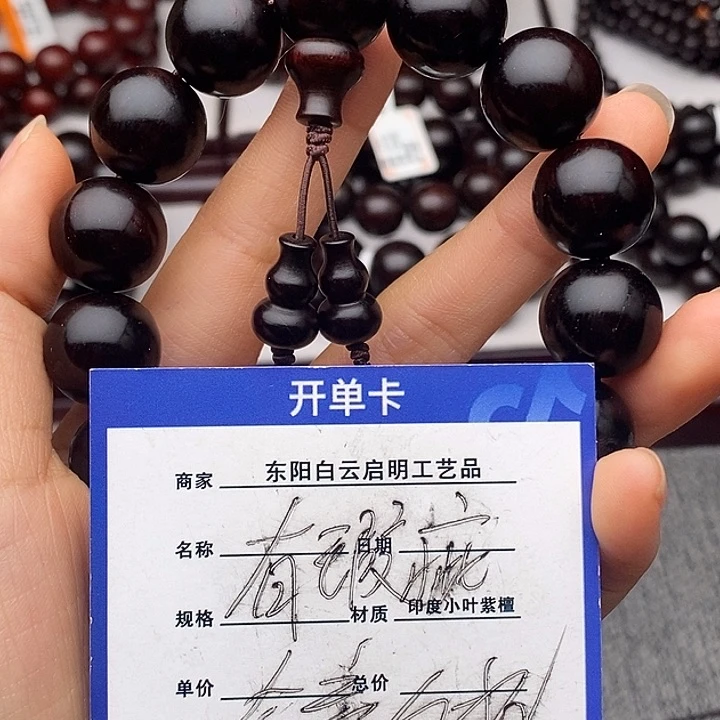 开单卡
商家 东阳白云启明工艺品
名称 日期
有瑕疵
规格 材质 印度小叶紫檀
单价 总价